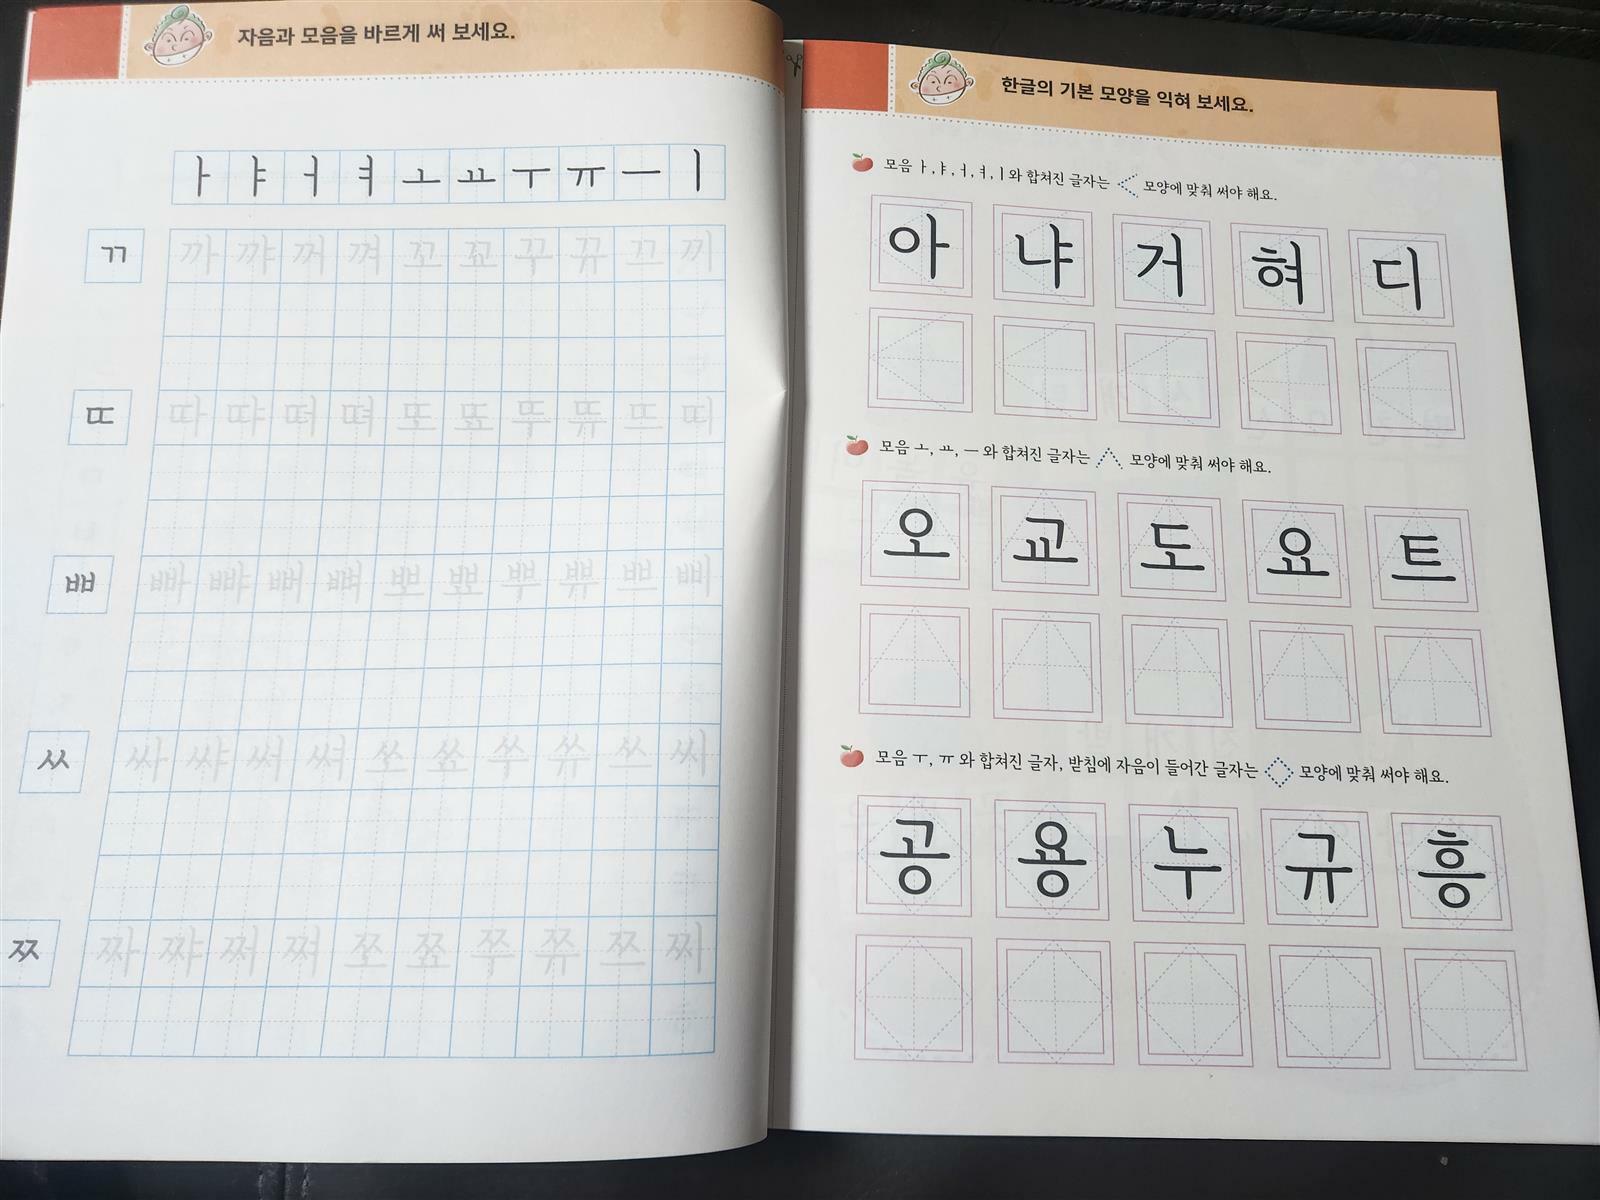 자음과 모음을 바르게 써 보세요.
ㅏ ㅑ ㅓ ㅕ ㅗ ㅛ ㅜ ㅠ ㅡ ㅣ
ㄲ 까 꺄 꺼 껴 꼬 꾜 꾸 뀨 끄 끼
ㄸ 따 땨 떠 뗘 또 뚀 뚜 뜌 뜨 띠
ㅃ 빠 뺘 뻐 뼈 뽀 뾰 뿌 쀼 쁘 삐
ㅆ 싸 쌰 써 쎠 쏘 쑈 쑤 쓔 쓰 씨
ㅉ 짜 쨔 쩌 쪄 쪼 쬬 쭈 쮸 쯔 찌
한글의 기본 모양을 익혀 보세요.
모음 ㅏ, ㅑ, ㅓ, ㅕ, ㅣ와 합쳐진 글자는 모양에 맞춰 써야 해요.
아 냐 거 혀 디
모음 ㅗ, ㅛ, ㅡ 와 합쳐진 글자는 모양에 맞춰 써야 해요.
오 교 도 요 트
모음 ㅜ, ㅠ 와 합쳐진 글자, 받침에 자음이 들어간 글자는 모양에 맞춰 써야 해요.
공 용 누 규 흥